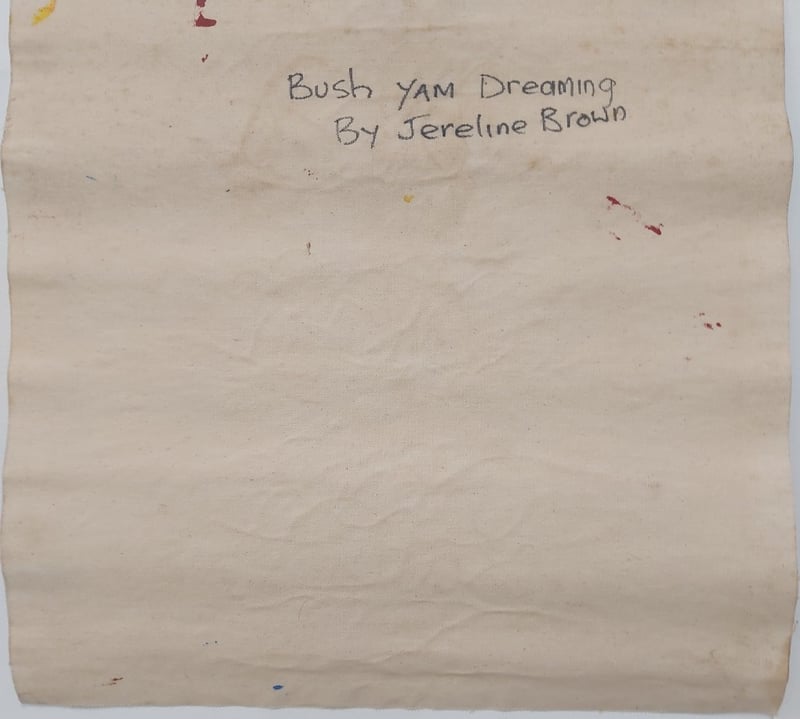 Bush YAM Dreaming
By Jereline Brown